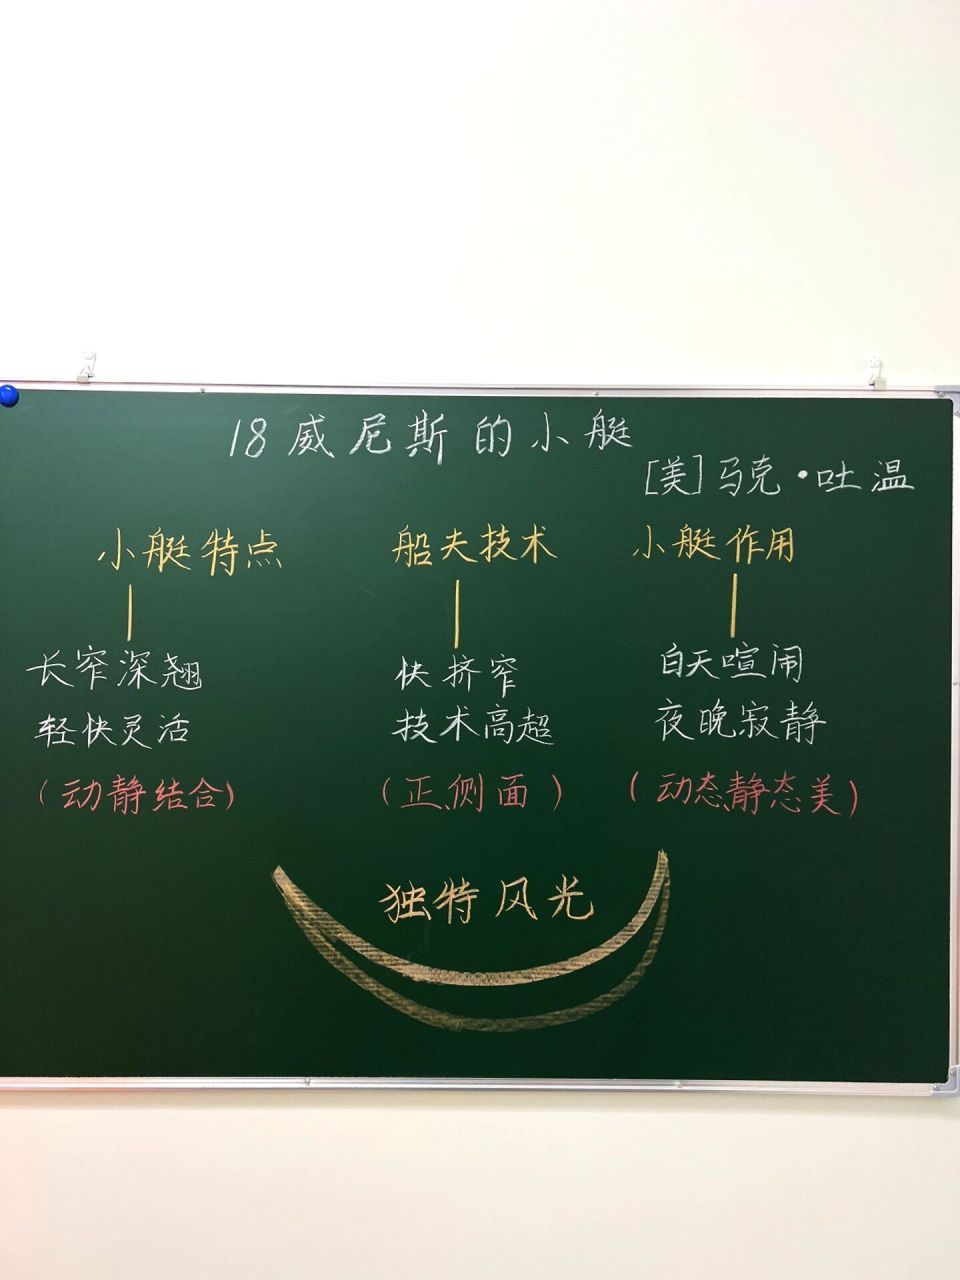 18 威尼斯的小艇
[美]马克·吐温
小艇特点 船夫技术 小艇作用
长窄深翘 快挤窄 白天喧闹
轻快灵活 技术高超 夜晚寂静
(动静结合) (正、侧面) (动态、静态美)
独特风光